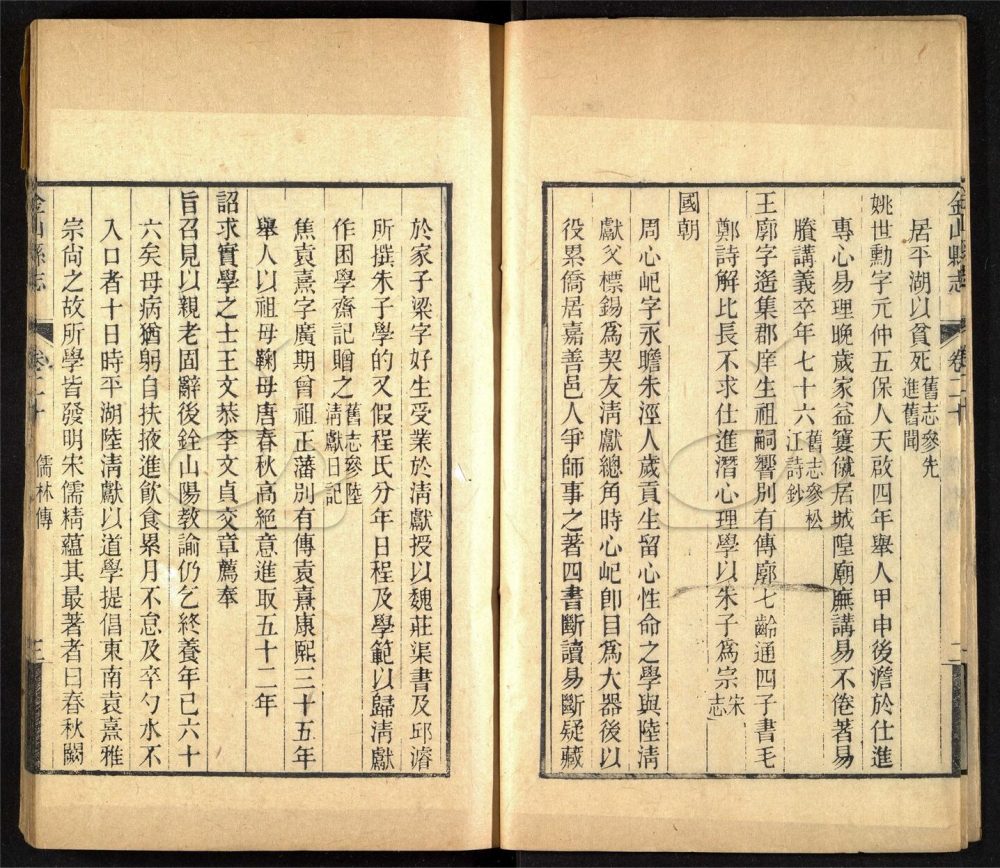 金山縣志
卷二十
二
居平湖以貧死舊志參先進舊聞
姚世勳字元仲五保人天啟四年舉人甲申後澹於仕進
專心易理晚歲家益窶僦居城隍廟廡講易不倦著易
牖講義卒年七十六舊志參松江詩鈔
王廓字遙集郡庠生祖嗣響別有傳廓七齡通四子書毛
鄭詩解比長不求仕進潛心理學以朱子為宗宋志
國朝
周心屺字永瞻朱涇人歲貢生留心性命之學與陸清
獻父標錫為契友清獻總角時心屺卽目為大器後以
役累僑居嘉善邑人爭師事之著四書斷讀易斷疑藏
於家子梁字好生受業於清獻授以魏莊渠書及邱濬
所撰朱子學的又假程氏分年日程及學範以歸清獻
作困學齋記贈之舊志參陸清獻日記
焦袁熹字廣期曾祖正藩別有傳袁熹康熙三十五年
舉人以祖母鞠母唐春秋高絕意進取五十二年
詔求實學之士王文恭李文貞交章薦奉
旨召見以親老固辭後銓山陽教諭仍乞終養年已六十
六矣母病猶躬自扶掖進飲食累月不怠及卒勺水不
入口者十日時平湖陸清獻以道學提倡東南袁熹雅
宗尙之故所學皆發明宋儒精蘊其最著者曰春秋闕
金山縣志
卷二十
儒林傳
三